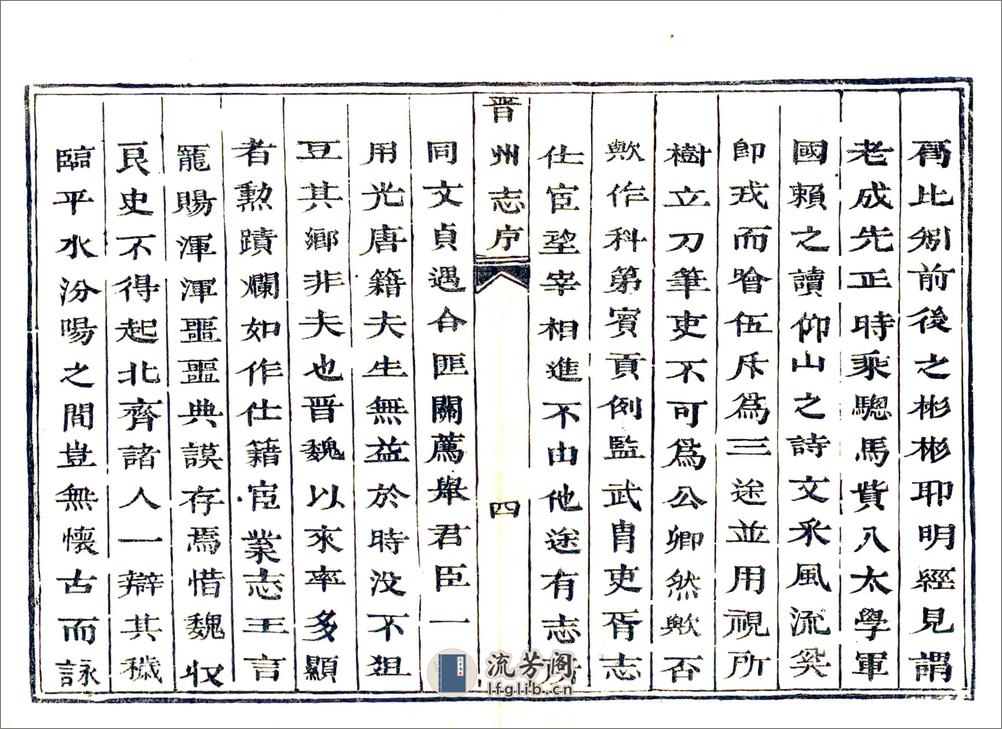 比前後之彬彬耶明經見謂
老成先正時乘驄馬貲入太學軍
國賴之讀仰山之詩文采風流奕
即戎而噲伍斥為三途並用視所
樹立刀筆吏不可為公卿然歟否
歟作科第賓貢例監武胄吏胥志
仕宦至宰相進不由他途有志
晋州志序
四
同文貞遇合匪關薦舉君臣一
用光唐籍夫生無益於時没不俎
豆其鄉非夫也晋魏以來率多顯
者勲蹟爛如作仕籍宦業志王言
寵賜渾渾噩噩典謨存焉惜魏收
良史不得起北齊諸人一辯其穢
臨平水汾陽之間豈無懷古而詠
流芳阁
lfglib.cn